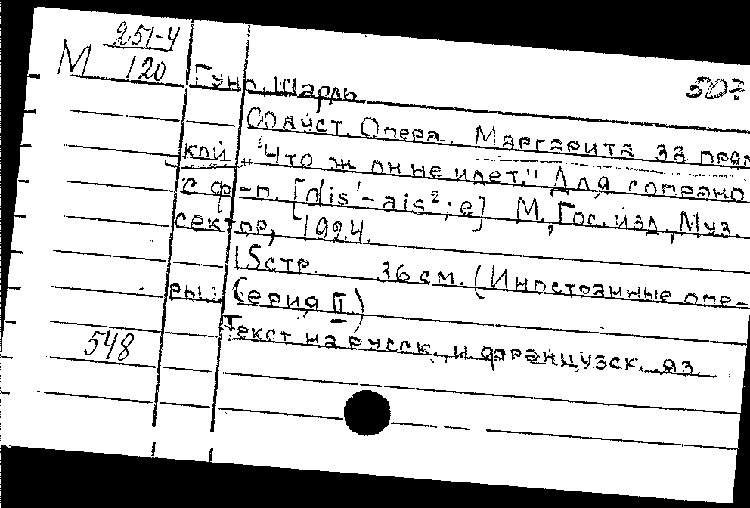 251-4
М 120 Гуно, Шарль 507
Фауст. Опера. Маргарита за прял
кой "Что ж он не идет." Для сопрано
с ф-п. [dis¹-ais²; e] М., Гос. изд., Муз.
сектор, 1924.
15 стр. 36 см. (Иностранные опе-
ры. Серия II)
548 Текст на русск. и французск. яз